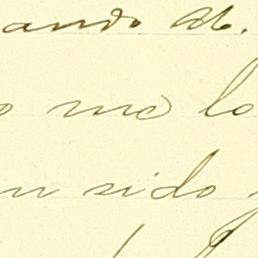 ando
o me lo
n sido